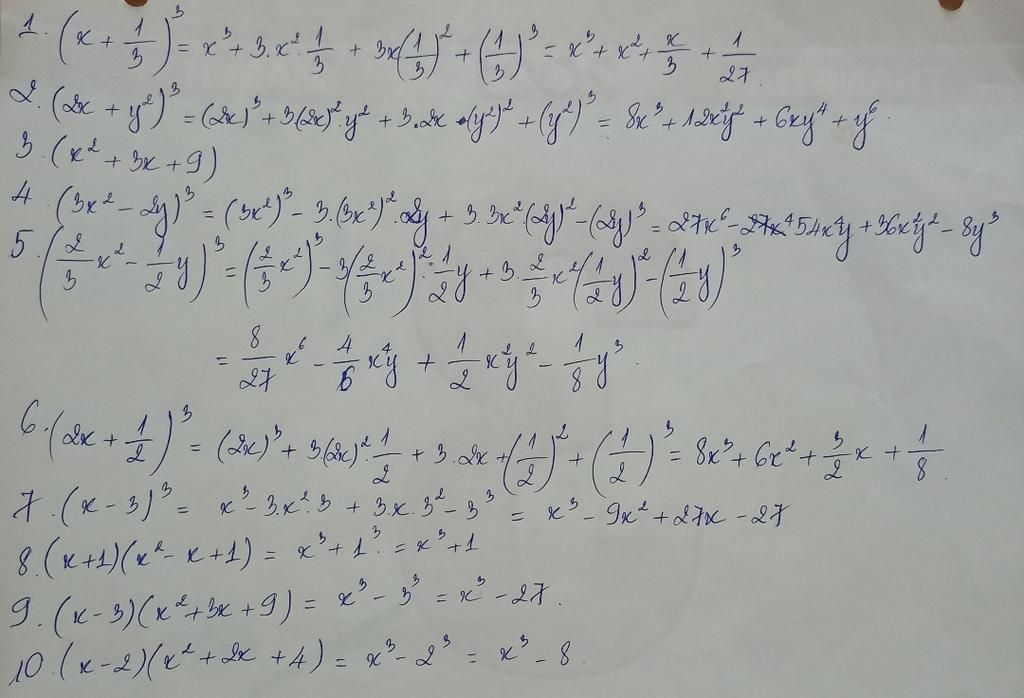 1. (x + 1/3)³ = x³ + 3.x². 1/3 + 3x(1/3)² + (1/3)³ = x³ + x² + x/3 + 1/27.
2. (2x + y²)³ = (2x)³ + 3(2x)².y² + 3.2x.(y²)² + (y²)³ = 8x³ + 12x²y² + 6xy⁴ + y⁶.
3. (x² + 3x + 9)
4. (3x² - 2y)³ = (3x²)³ - 3.(3x²)².2y + 3.3x².(2y)² - (2y)³ = 27x⁶ - 27x⁴ 54x⁴y + 36x²y² - 8y³
5. (2/3 x² - 1/2 y)³ = (2/3 x²)³ - 3(2/3 x²)². 1/2 y + 3. 2/3 x²(1/2 y)² - (1/2 y)³
= 8/27 x⁶ - 4/6 x⁴y + 1/2 x²y² - 1/8 y³.
6. (2x + 1/2)³ = (2x)³ + 3.(2x)². 1/2 + 3.2x + (1/2)² + (1/2)³ = 8x³ + 6x² + 3/2 x + 1/8.
7. (x - 3)³ = x³ - 3.x².3 + 3.x.3² - 3³ = x³ - 9x² + 27x - 27
8. (x+1)(x² - x + 1) = x³ + 1³ = x³ + 1
9. (x - 3)(x² + 3x + 9) = x³ - 3³ = x³ - 27.
10. (x - 2)(x² + 2x + 4) = x³ - 2³ = x³ - 8.